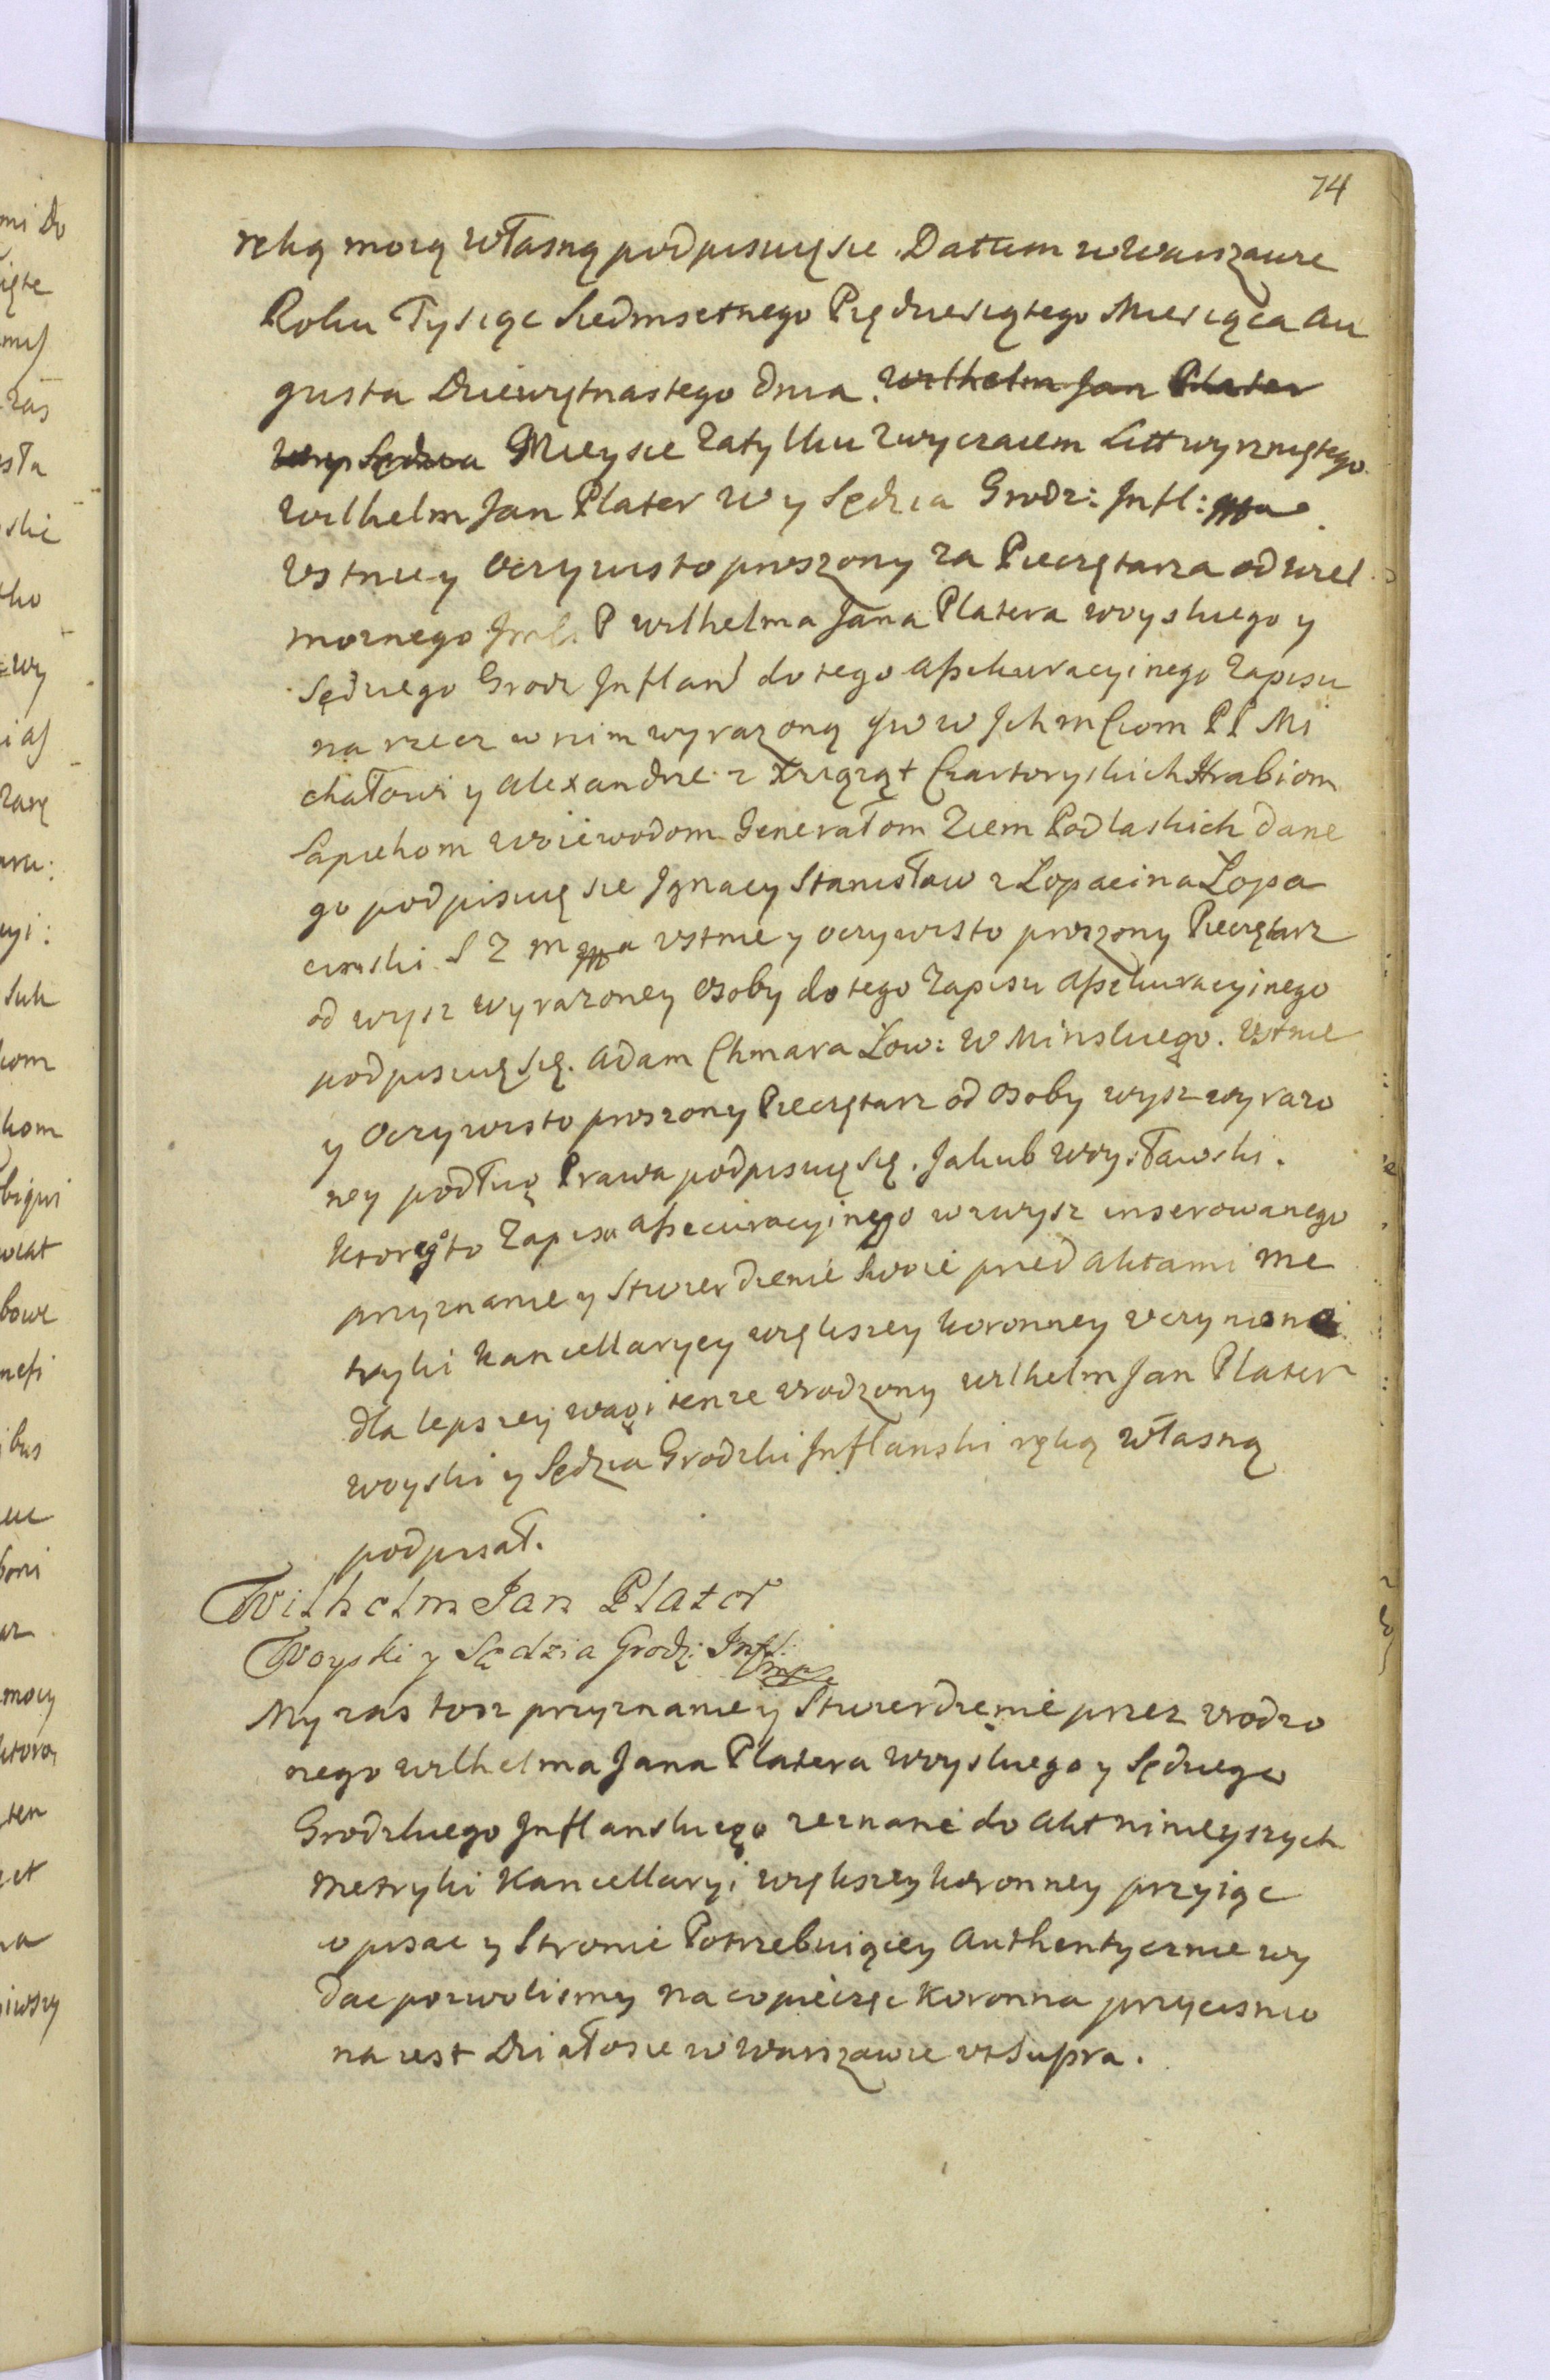 74
ręką moią własną podpisuię sie. Datum w Warszawie
Roku Tysiąc Siedmsetnego Piędziesiątego Miesiąca Au
gusta Dziewiętnastego dnia. Wilhelm Jan Plater
Woy Sędzia Mieysce Zatyłku zwyczaiem Litt wyrzniętego
Wilhelm Jan Plater W y Sędzia Grodz: Infl: mpa
Vstnie y Oczywisto proszony za Pieczętarza od wiel
moznego P Wilhelma Jana Platera woyskiego y
Sędziego Grodz Infland do tego assekuracyinego Zapisu
na rzecz w nim wyrazoną JWW Ichm Ciom PP Mi
chałowi y Alexandrze z Xiąząt Czartoryskich Hrabiom
Sapiehom woiewodom Generałom Ziem Podlaskich dane
go podpisuię sie Ignacy Stanisław z Łopacina Łopa
cinski S Z M mpa Vstnie y oczywisto proszony Pieczętarz
od wysz wyrazoney Osoby do tego Zapisu assekuracyinego
podpisuię się. Adam Chmara Łow: W Minskiego. Ustnie
y Oczywisto proszony Pieczętarz od Osoby wysz wyrazo
ney podług Prawa podpisuię się. Jakub Woysławski.
Ktorego to Zapisu assecuracyinego wzwysz inserowanego
przyznanie y Stwierdzenie Swoie przed Aktami Me
tryki Kancellaryey większey koronney vczynione
dla lepszey wagi tenze vrodzony Wilhelm Jan Plater
woyski y Sędzia Grodzki Inflanski ręką własną
podpisał.
Wilhelm Jan Plater
Woyski y Sędzia Grodz: Infl: mpa
My zas tosz przyznanie y Stwierdzenie przez vrodzo
nego Wilhelma Jana Platera Woyskiego y Sędziego
Grodzkiego Inflanskiego zeznane do Akt ninieyszych
Metryki Kancellaryi większey koronney przyiąc
wpisac y Stronie Potrzebuiącey Authentycznie wy
dac pozwolismy na co pieczęc Koronna przycisnio
na iest Działosie w Warszawie vt Supra.